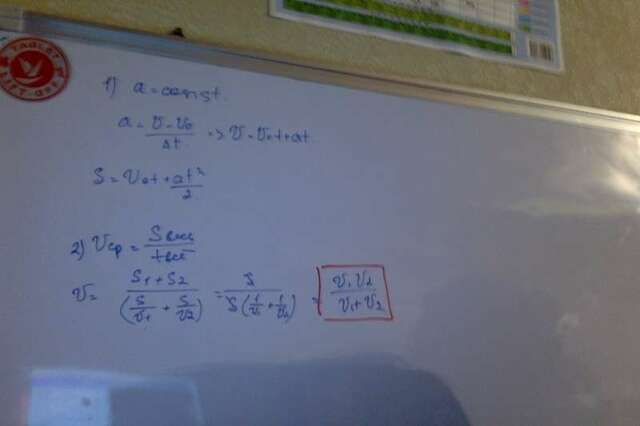 TABLET
1) a = const.
a = (v - v₀)/Δt => v = v₀t + at.
S = v₀t + at²/2
2) Vср = Sвесь/tвсё
V = (S₁ + S₂)/(S/v₁ + S/v₂) = S/(S(1/v₁ + 1/v₂)) = v₁v₂/(v₁ + v₂)